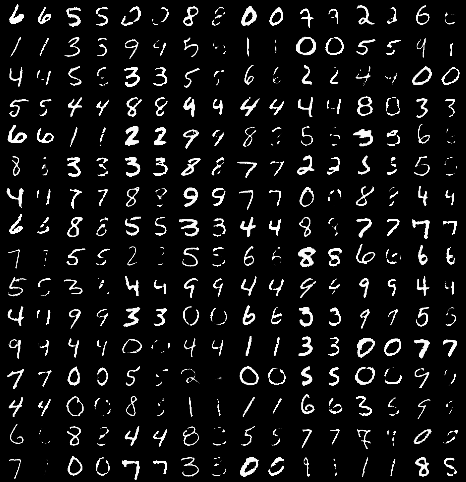 6 6 5 5 0 0 8 8 0 0 7 7 2 2 6
1 1 3 3 9 9 5 1 1 0 0 5 5 9 1
4 4 5 5 3 3 5 5 6 6 2 2 4 4 0 0
5 5 4 4 8 8 9 9 4 4 4 4 8 0 3 3
6 6 1 1 2 2 9 9 8 5 5 3 3 6 6
8 3 3 3 3 8 8 7 7 2 2 3 3 5 5
4 4 7 7 8 8 9 9 7 7 0 0 8 8 4 4
6 6 8 8 5 5 3 3 4 4 8 8 7 7 7 7
7 5 5 2 5 5 6 6 8 8 6 6 6 6
5 5 3 4 4 9 9 4 4 9 9 9 9 4 4
4 4 9 9 3 3 0 0 6 6 3 3 9 9 5 5
9 9 4 4 0 0 4 4 1 1 3 3 0 0 7 7
7 7 0 0 5 5 2 0 0 5 5 0 0 9 9
4 4 0 0 8 8 1 1 1 1 6 6 3 5 9 9
6 8 2 4 4 8 5 5 7 7 7 0 0
7 0 0 7 7 3 3 0 0 9 1 1 8 5